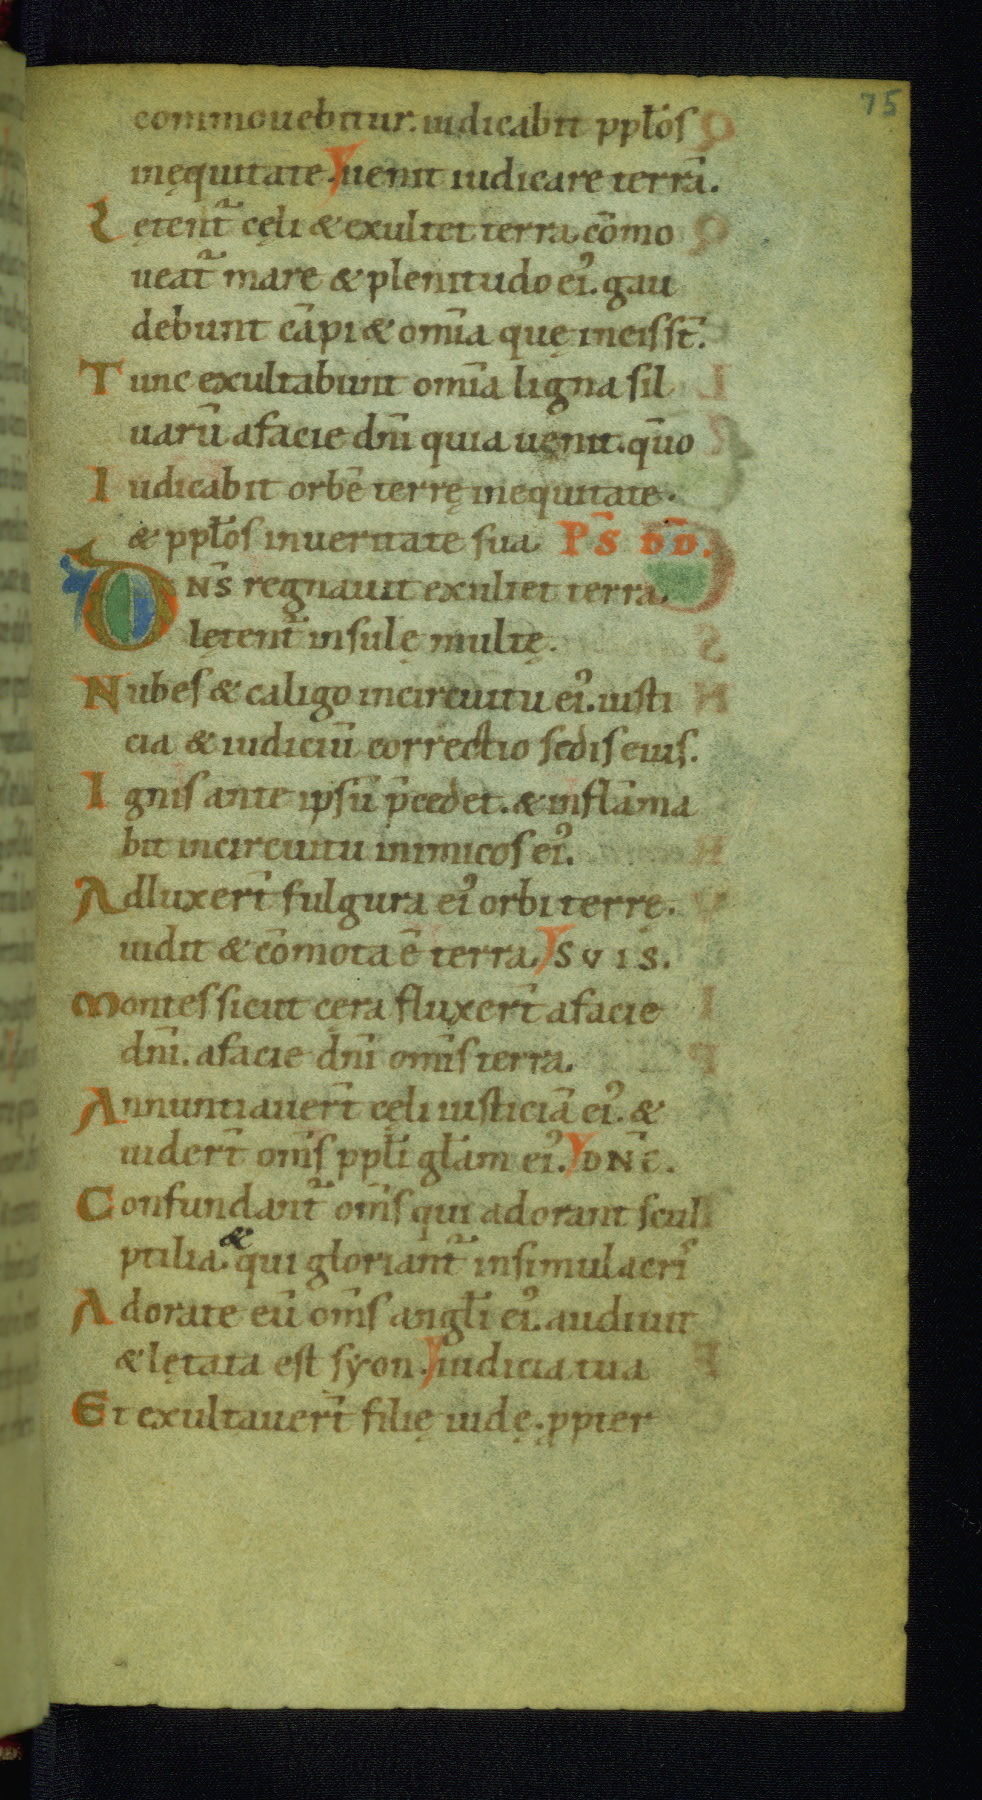 75
commouebitur. iudicabit ppłos
inęquitate. uenit iudicare terrā.
Lętent᷑ cęli & exultet terra cōmo
ueat᷑ mare & plenitudo ei᾽. gau
debunt cāpi & om̄ia quę ineis st̄.
Tunc exultabunt om̄ia ligna sil
uarū afacie dn̄i quia uenit. qm̄o
Iudicabit orbē terrę inequitate.
& ppłos inueritate sua PS̄ DD̄.
DN̄S regnauit exultet terra.
lętent᷑ insulę multę.
Nubes & caligo incircuitu ei᾽. iusti
cia & iudiciū correctio sedis eius.
Ignis ante ipsū p̄cedet. & inflāma
bit incircuitu inimicos ei᾽.
Adluxer̄t fulgura ei᾽ orbi terrę.
uidit & cōmota ē terra. SVIS.
Montes sicut cęra fluxer̄t afacie
dn̄i. afacie dn̄i om̄is terra.
Annuntiauer̄t cęli iusticiā ei᾽. &
uider̄t om̄s ppłi głam ei᾽. DN̄C̄.
Confundant᷑ om̄s qui adorant scul
ptilia. & qui gloriant᷑ insimulacri᾽
Adorate eū om̄s angłi ei᾽. audiuit
& lętata est syon. iudicia tua
Et exultauer̄t filię iudę. ꝓpter